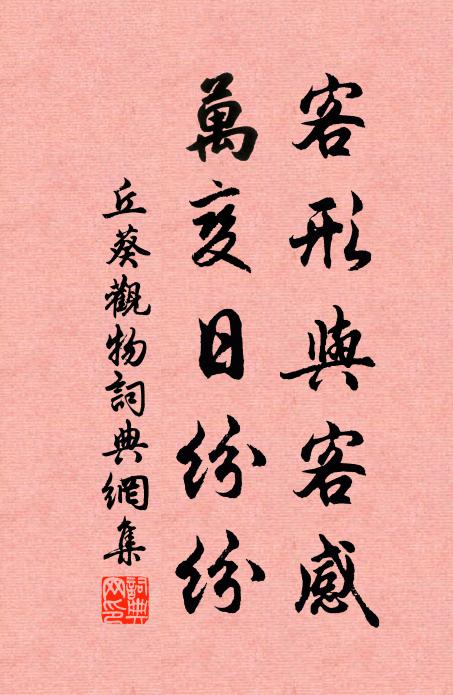 客形與客感
萬变日紛紛
丘葵觀物詞典網集
詞典网印